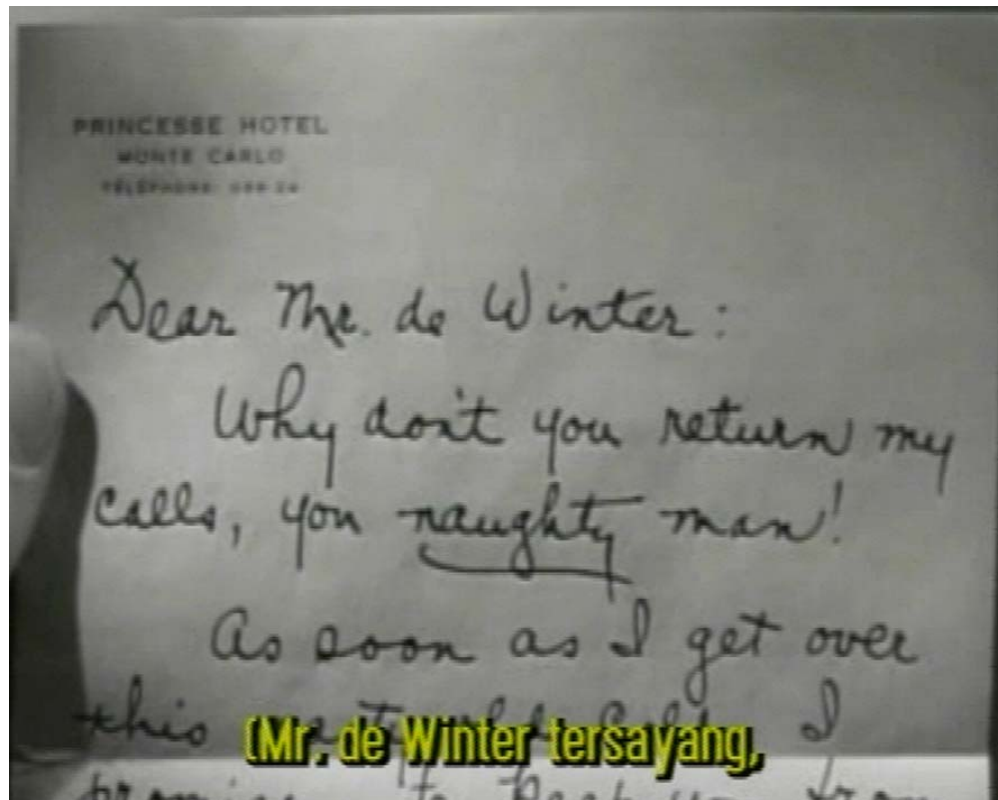 PRINCESSE HOTEL
MONTE CARLO
TELEPHONE:
Dear Mr. de Winter:
Why don't you return my
calls, you naughty man!
As soon as I get over
this I
(Mr. de Winter tersayang,
promise to keep you from